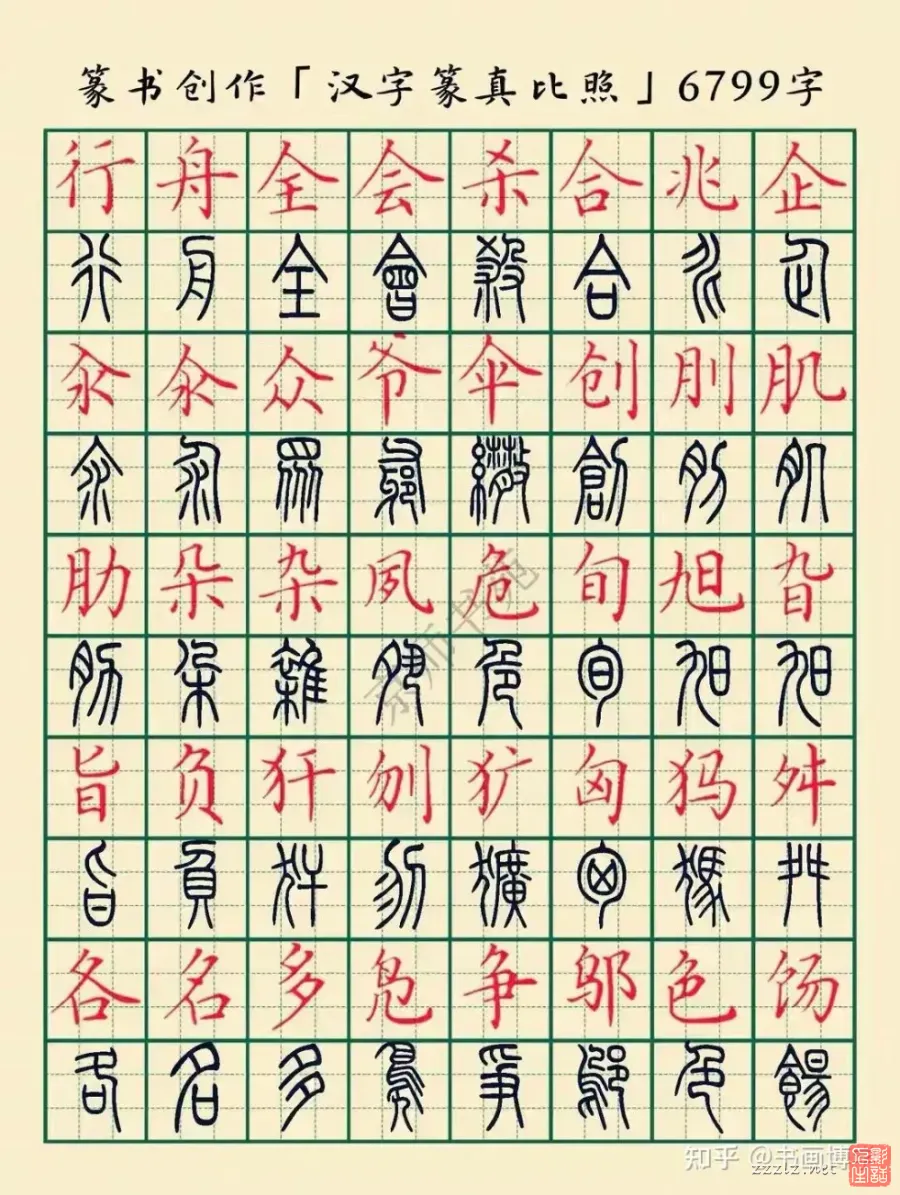 篆书创作「汉字篆真比照」6799字
行舟全会杀合兆企
行舟全會殺合兆企
汆氽众爷伞创刖肌
汆氽眾繖創刖肌
肋朵杂夙危旬旭旮
肋朵雜夙危旬旭旭
旨负犴刎犷匈犸舛
旨負犴刎獷匈獁舛
各名多凫争邬色饧
各名多鳧爭鄔色餳
知乎 @书画博
zzzlz.net